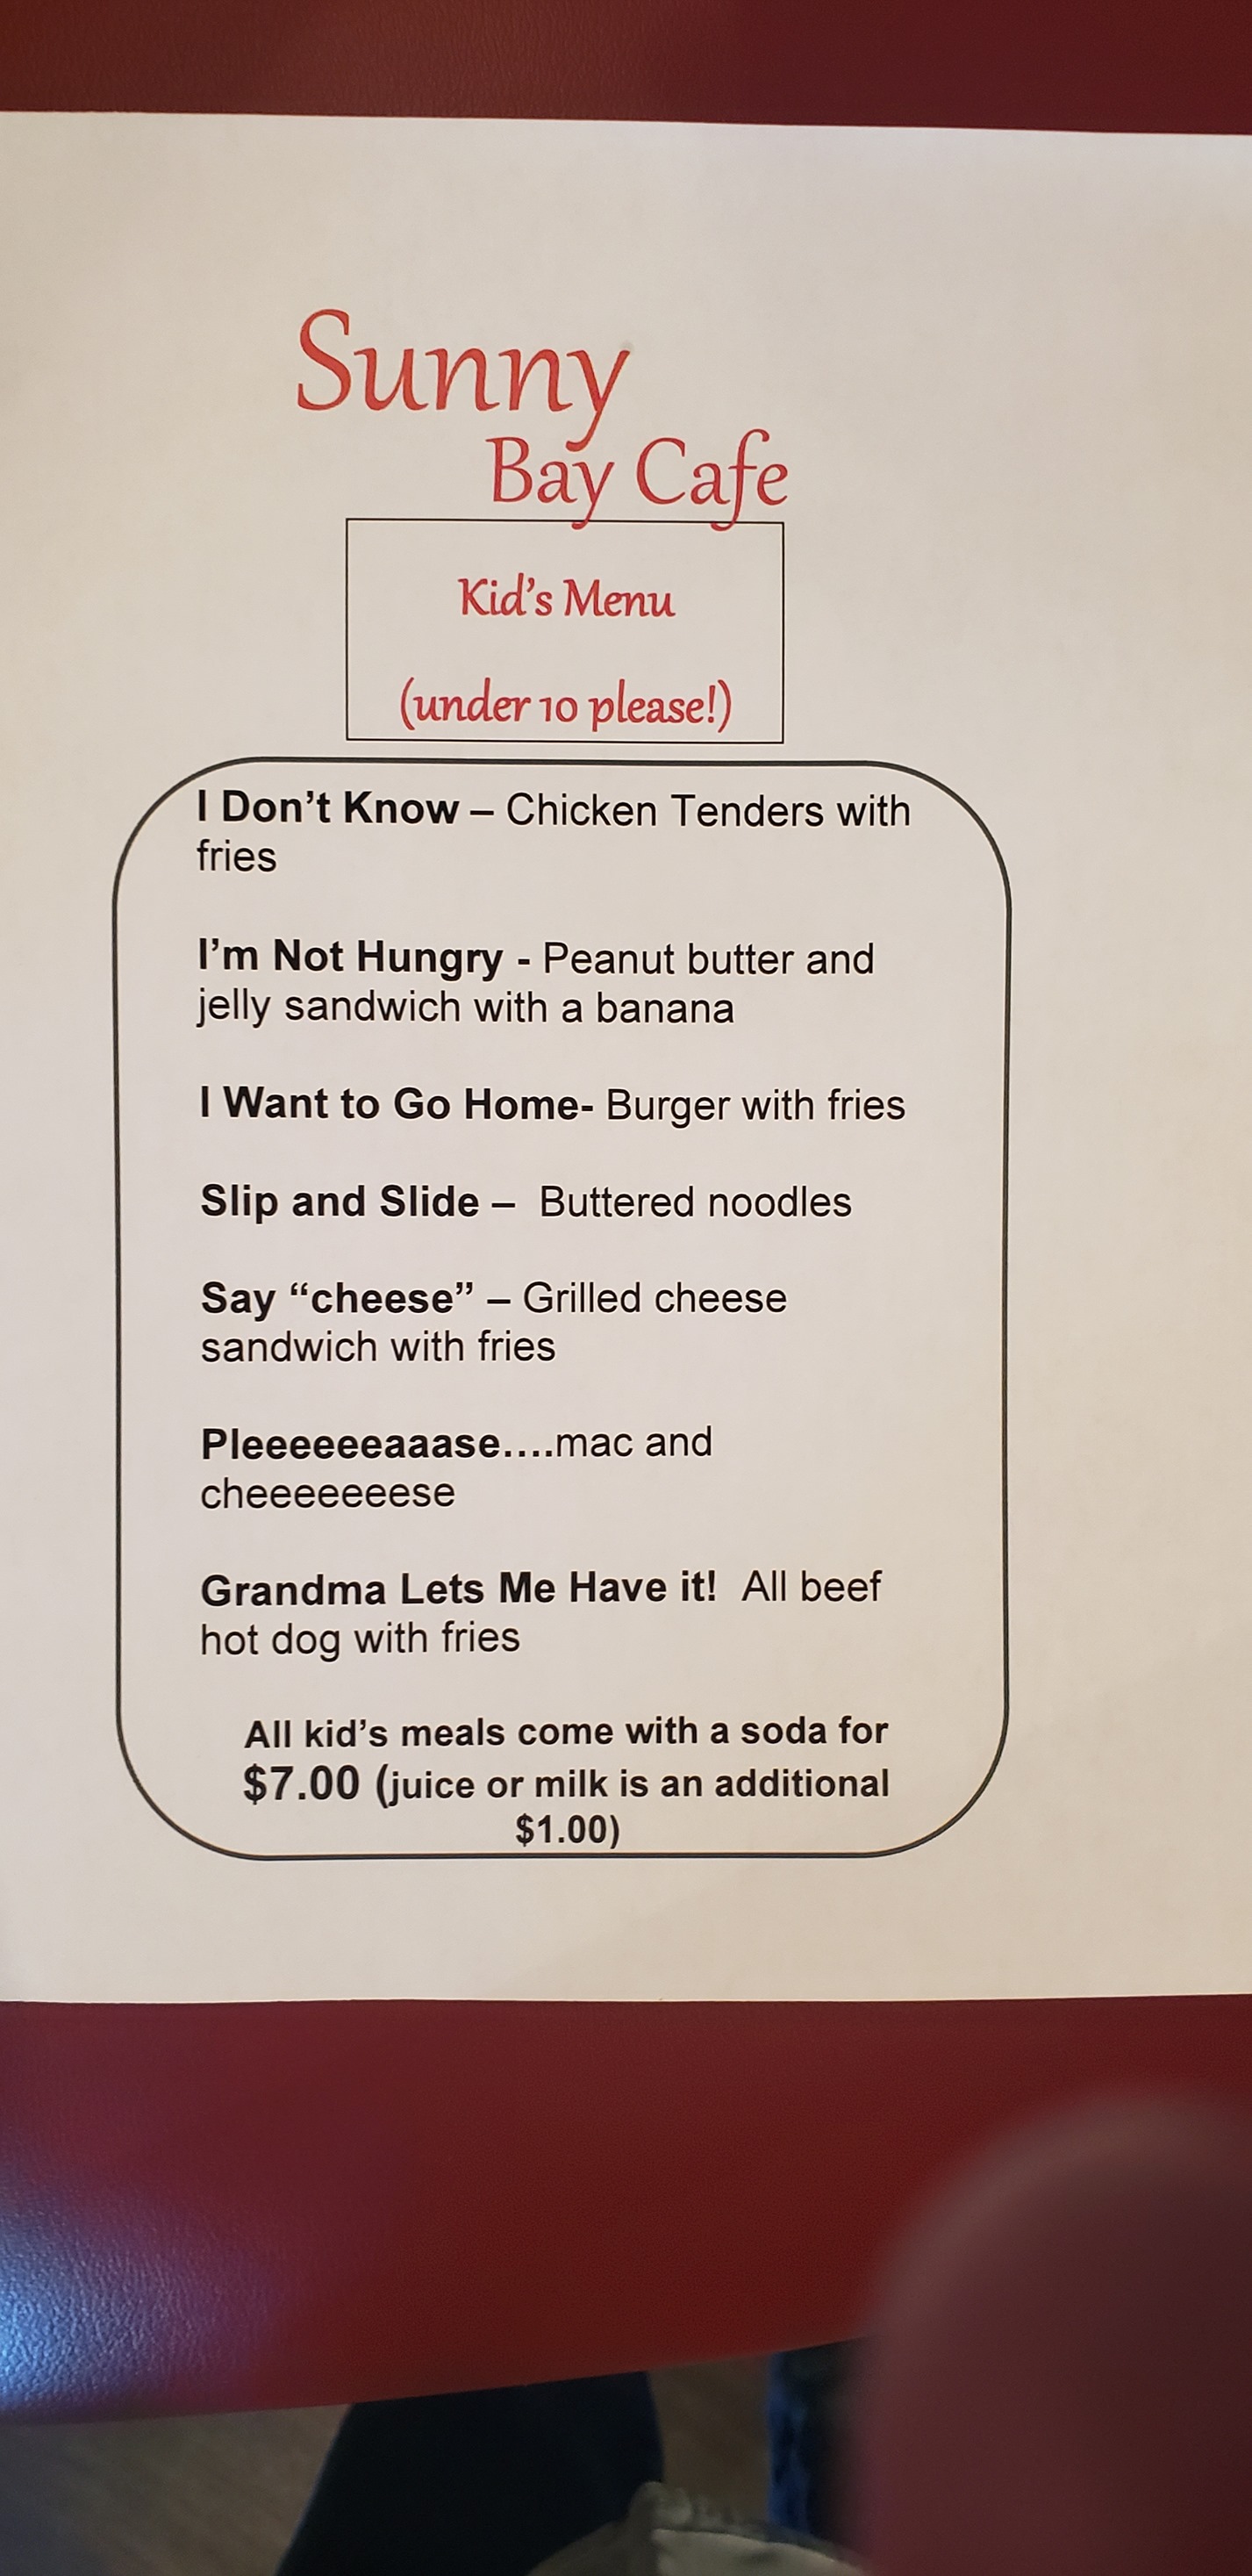 Sunny
Bay Cafe
Kid's Menu
(under 10 please!)
I Don't Know – Chicken Tenders with
fries
I'm Not Hungry - Peanut butter and
jelly sandwich with a banana
I Want to Go Home- Burger with fries
Slip and Slide –  Buttered noodles
Say “cheese” – Grilled cheese
sandwich with fries
Pleeeeeeaaase....mac and
cheeeeeeese
Grandma Lets Me Have it!  All beef
hot dog with fries
All kid's meals come with a soda for
$7.00 (juice or milk is an additional
$1.00)